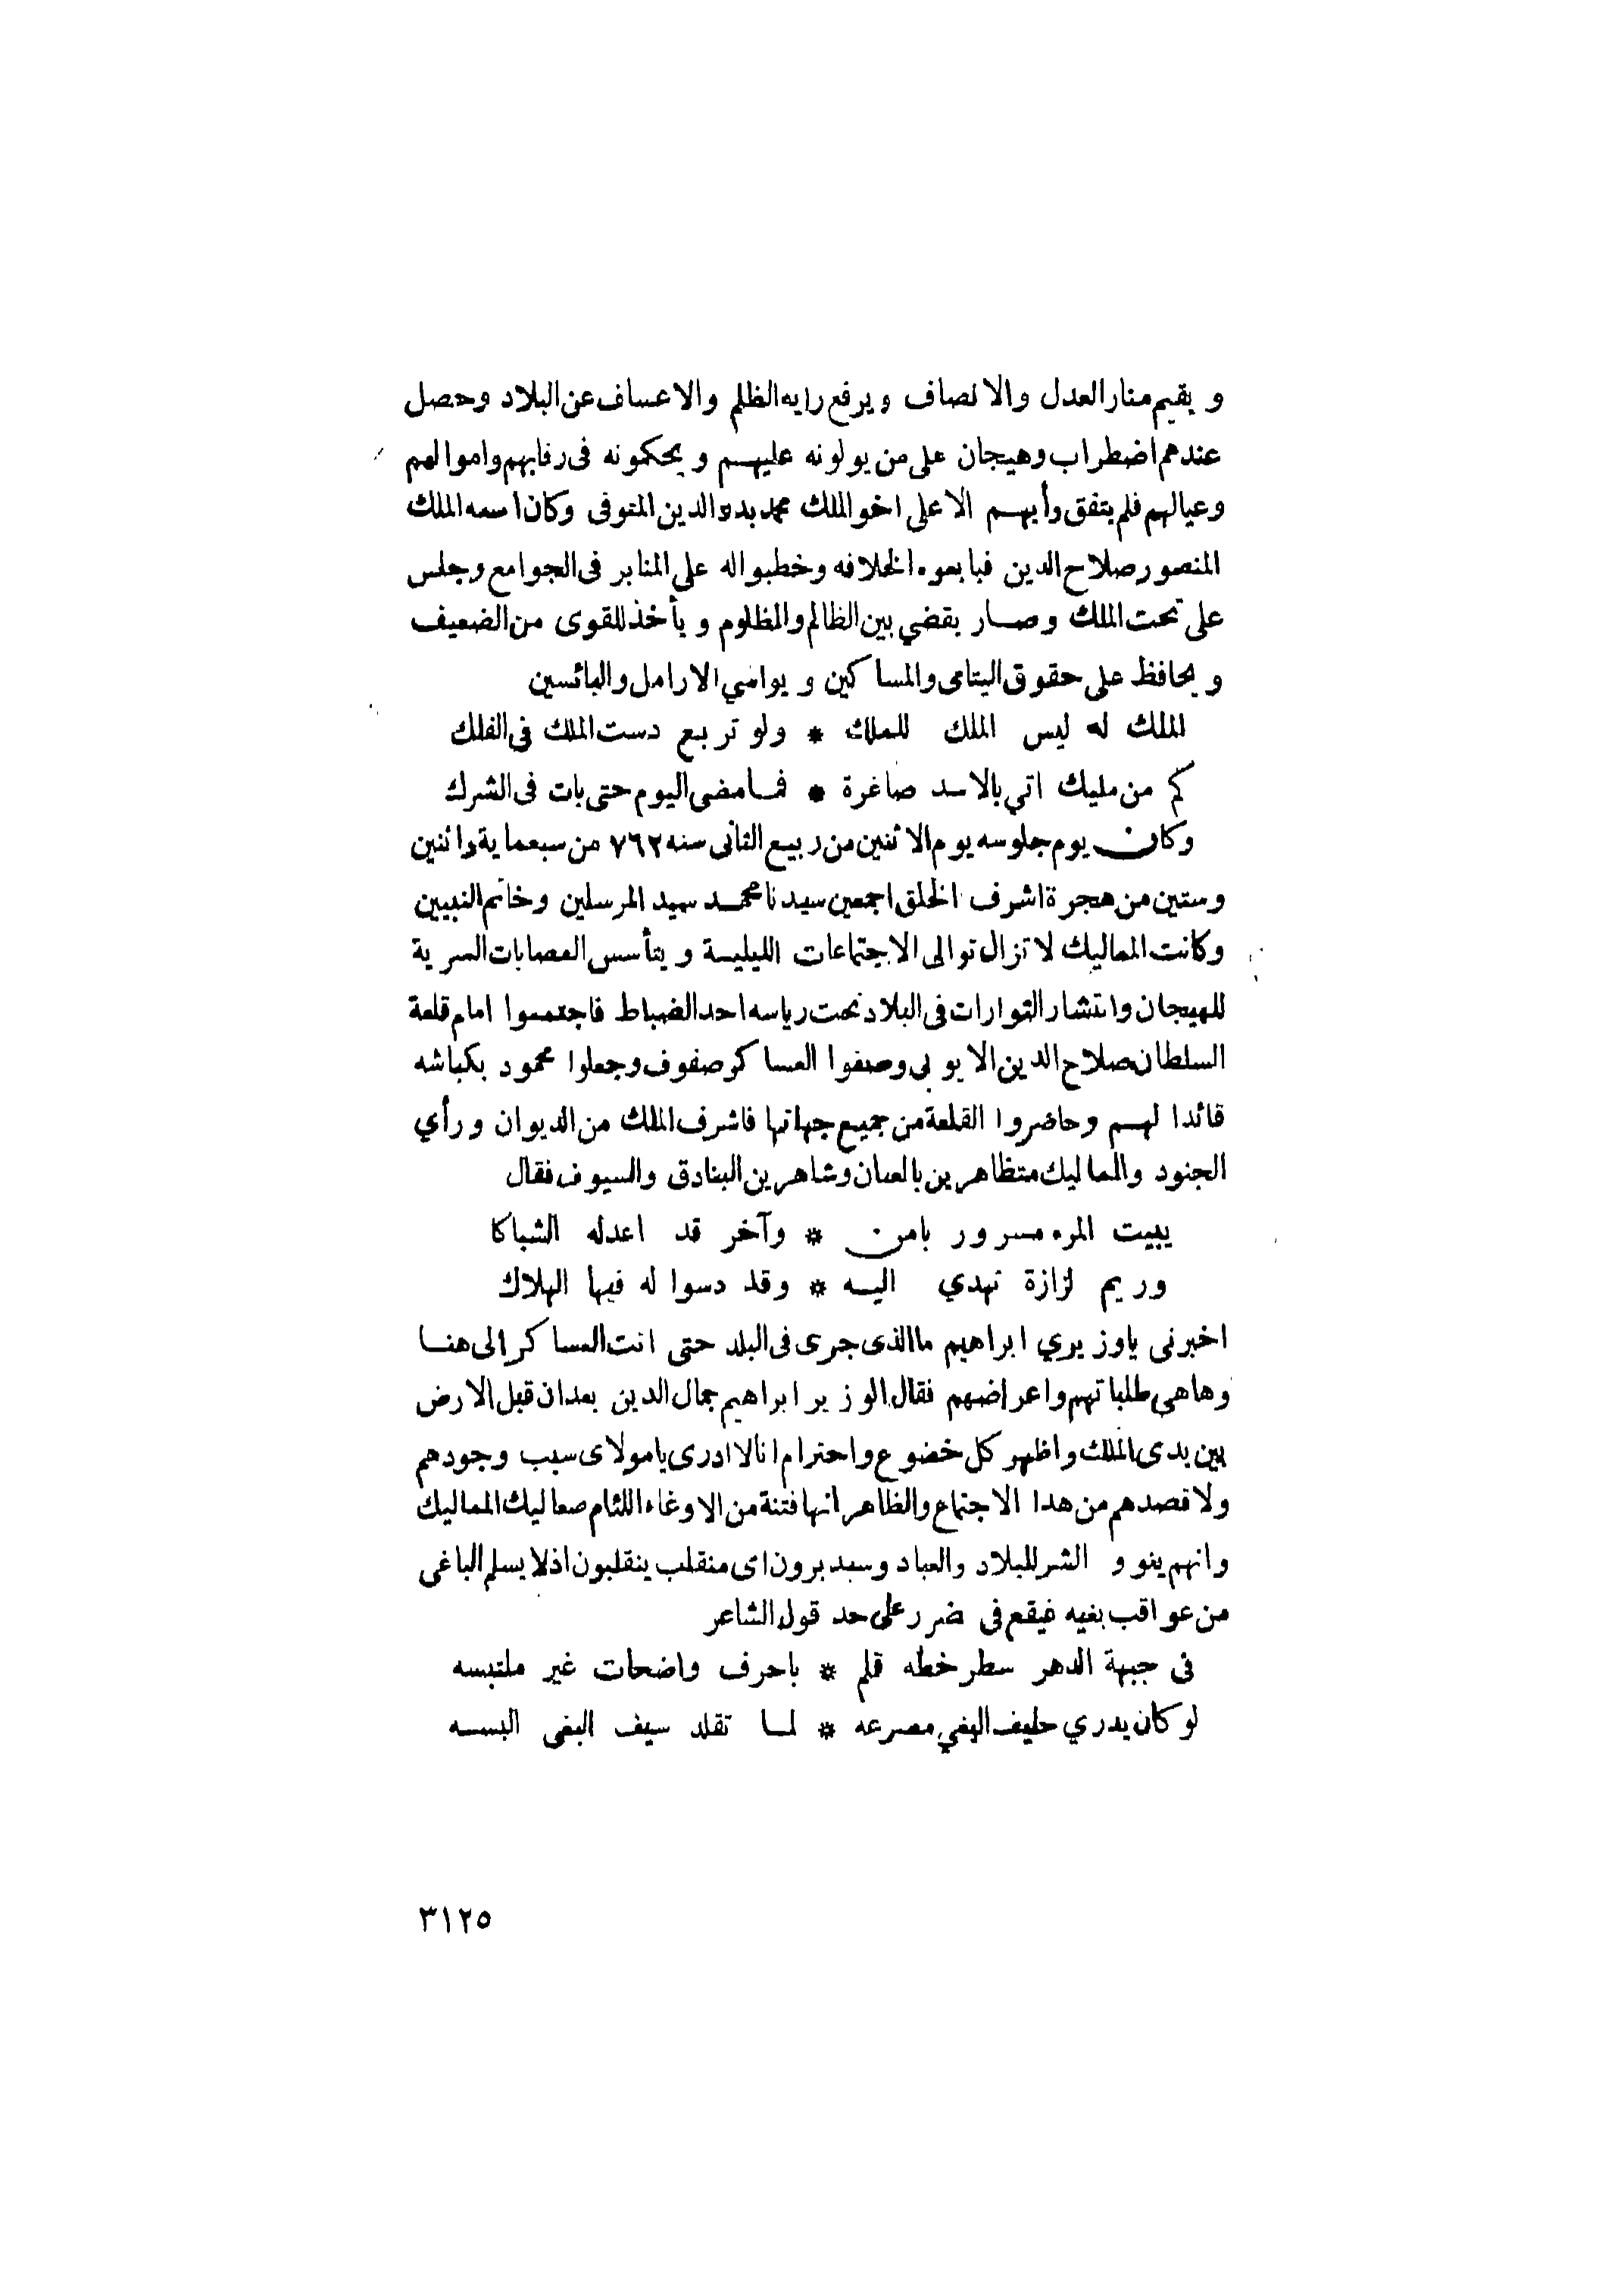 و يقيم منار العدل والانصاف ويرفع رايه الظلم والاعساف عن البلاد وحصل
عندهم اضطراب وهيجان على من يولونه عليهم ويحكمونه فى رقابهم واموالهم
وعيالهم فلم يتفق رأيهم الا على اخو الملك محمد بدر الدين المتوفى وكان اسمه الملك
المنصور صلاح الدين فبايعوه الخلافه وخطبوا له على المنابر فى الجوامع وجلس
على تخت الملك وصار يقضي بين الظالم والمظلوم و يأخذ للقوى من الضعيف
و يحافظ على حقوق اليتامى والمساكين و يواسي الارامل والبائسين
الملك له ليس الملك للملك * ولو تربع دست الملك فى الفلك
كم من مليك اتي بالاسد صاغرة * فما مضى اليوم حتى بات فى الشرك
وكان يوم جلوسه يوم الاثنين من ربيع الثانى سنه ٧٦٢ من سبعماية واثنين
وستين من هجرة اشرف الخلق اجمعين سيدنا محمد سيد المرسلين وخاتم النبيين
وكانت المماليك لا تزال توالى الاجتماعات الليلية و يتأسس العصابات السرية
للهيجان وانتشار الثوارات فى البلاد تحت رياسه احد الضباط فاجتمعوا امام قلعة
السلطان صلاح الدين الايوبى وصفوا العساكر صفوف وجعلوا محمود بكباشه
قائدا لهم وحاضروا القلعة من جميع جهاتها فاشرف الملك من الديوان ورأي
الجنود والمماليك متظاهرين بالعصان وشاهرين البنادق والسيوف فقال
يبيت المرء مسرور بامن * وآخر قد اعدله الشباكا
وريم لزازة تهدي اليه * وقد دسوا له فيها الهلاك
اخبرنى ياوزيري ابراهيم ماالذى جرى فى البلد حتى اتت العساكر الى هنا
وهاهى طلباتهم واعراضهم فقال الوزير ابراهيم جمال الدين بعد ان قبل الارض
بين يدى الملك واظهر كل خضوع واحترام انا لا ادرى يامولاى سبب وجودهم
ولا قصدهم من هدا الاجتماع والظاهر انها فتنة من الاوغاء اللئام صعاليك المماليك
وانهم ينوو الشر للبلاد والعباد وسيدبرون اى منقلب ينقلبون اذلا يسلم الباغى
من عواقب بغيه فيقع فى ضرر على حد قول الشاعر
فى جبهة الدهر سطر خطه قلم * باحرف واضحات غير ملتبسه
لو كان يدري حليف البغي مصرعه * لما تقلد سيف البغى البسه
٣١٢٥